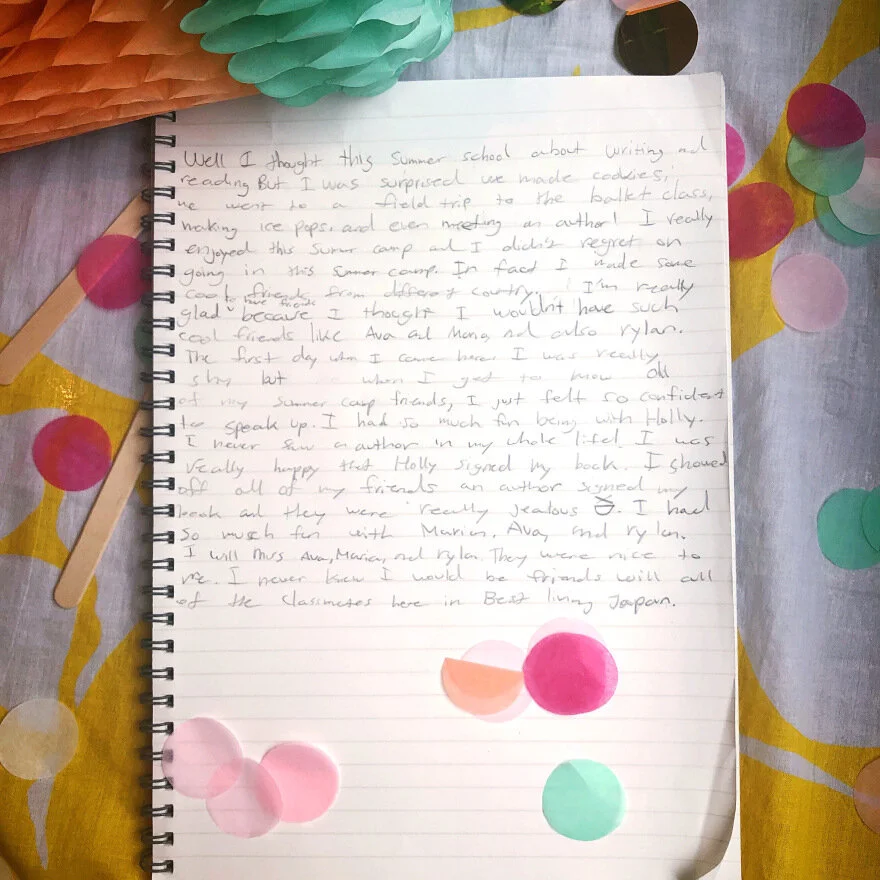 Well I thought this Summer school about writing and
reading But I was surprised we made cookies,
we went to a field trip to the ballet class,
making ice pops, and even meeting an author! I really
enjoyed this Sumer camp and I didn't regret on
going in this Summer camp. In fact I made some
cool friends from different country. I'm really
glad to have friends because I thought I wouldn't have such
cool friends like Ava and Maria, nd also rylan.
The first day when I came here I was really
shy but when I got to know all
of my summer camp friends, I just felt so confident
to speak up. I had so much fun being with Holly.
I never saw a author in my whole life! I was
really happy that Holly signed my book. I showed
off all of my friends an author signed my
book and they were really jealous. I had
so much fun with Maria, Ava, and rylan.
I will miss Ava, Maria, nd rylan. They were nice to
me. I never knew I would be friends will all
of the classmates here in Best living Japan.